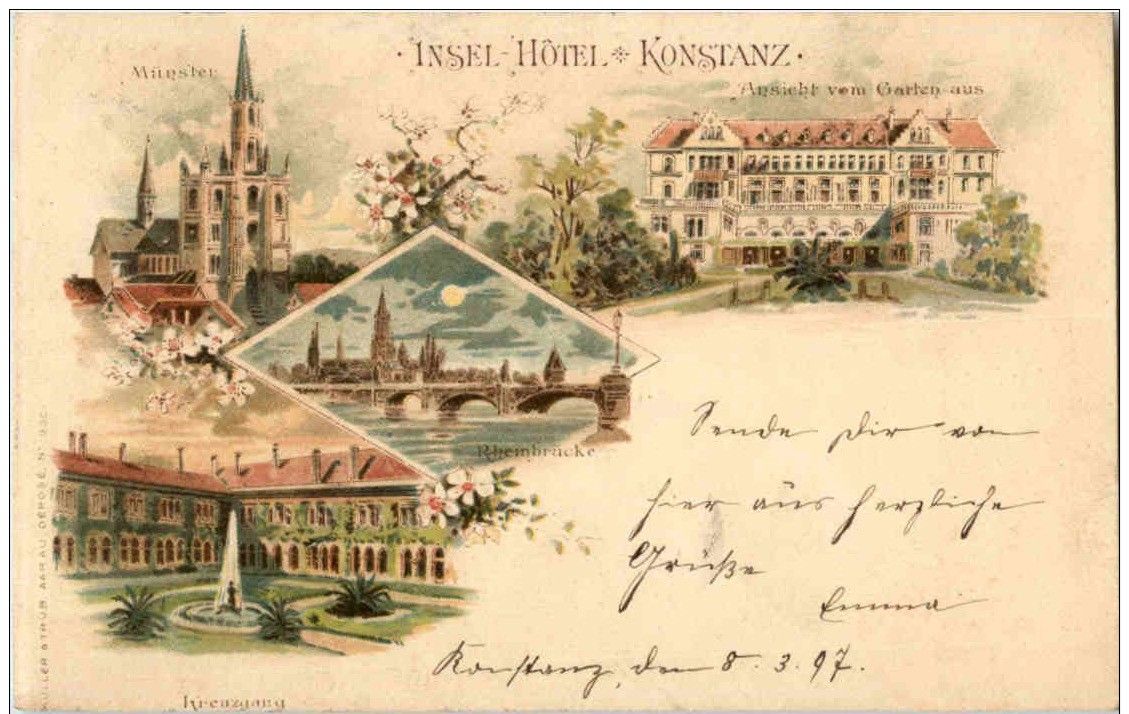 · INSEL-HÔTEL * KONSTANZ ·
Münster
Ansicht vom Garten aus
Rheinbrücke
Sende Dir von
hier aus herzliche
Grüße
Emma
Konstanz, den 8.3.97.
Kreuzgang
MÜLLER STRUB AARAU DEPOSÉ